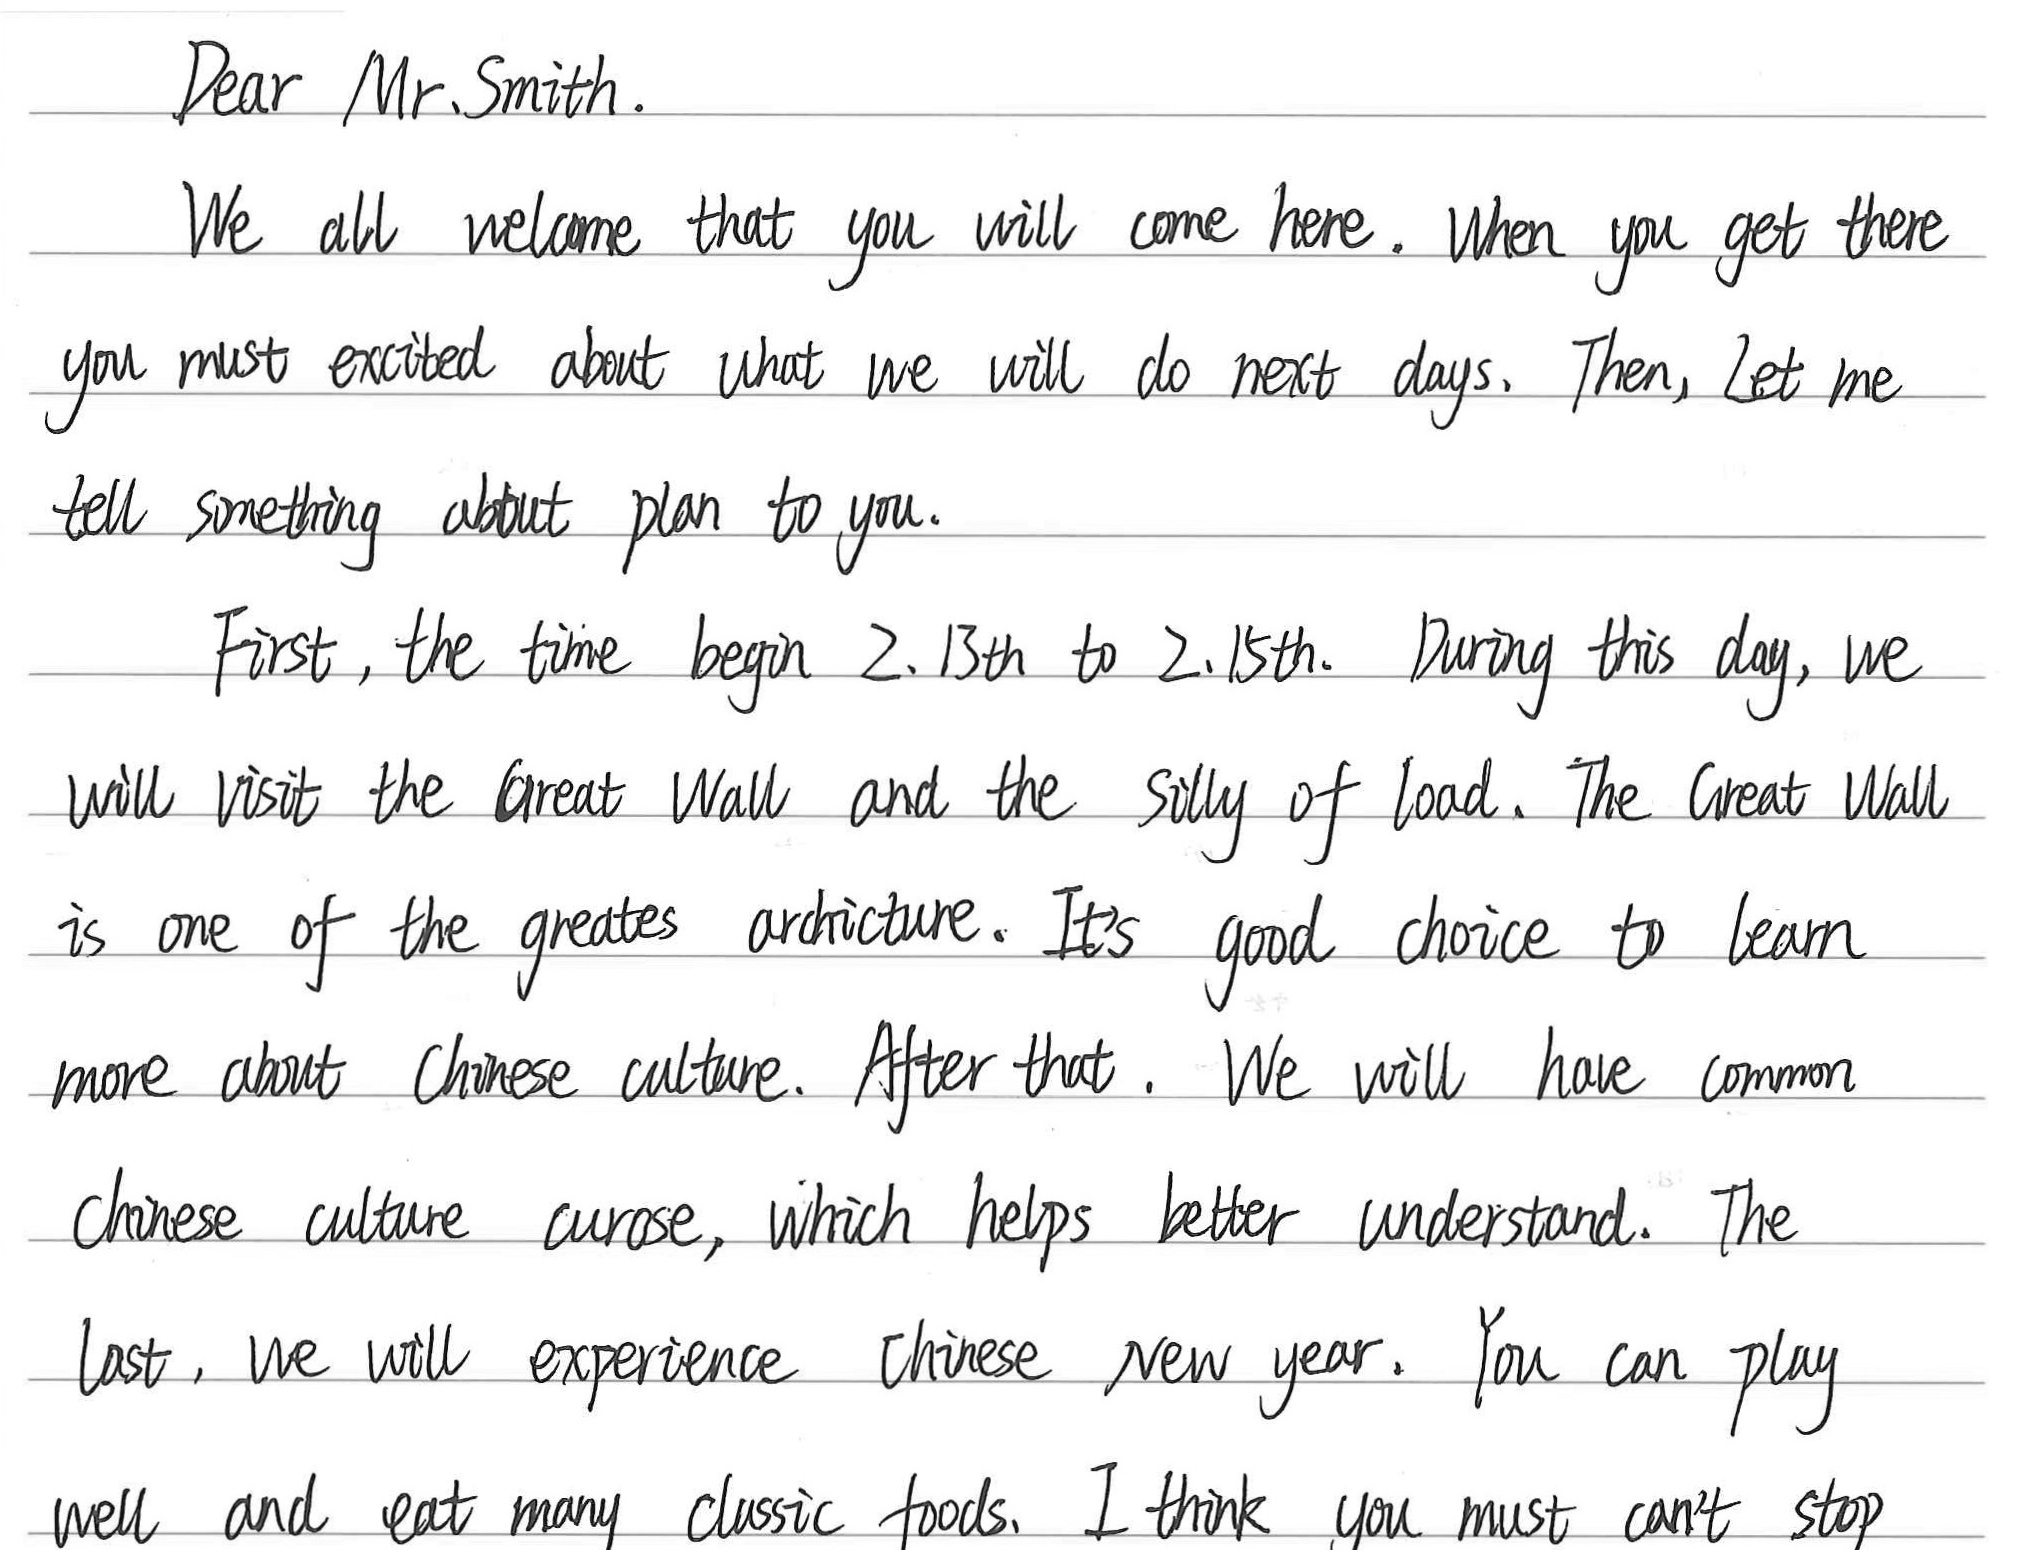 Dear Mr. Smith.
We all welcome that you will come here. When you get there
you must excited about what we will do next days. Then, Let me
tell something about plan to you.
First, the time begin 2.13th to 2.15th. During this day, we
will visit the Great Wall and the silly of load. The Great Wall
is one of the greates archicture. It's good choice to learn
more about Chinese culture. After that. We will have common
Chinese culture curose, which helps better understand. The
last, we will experience Chinese New year. You can play
well and eat many classic foods. I think you must can't stop